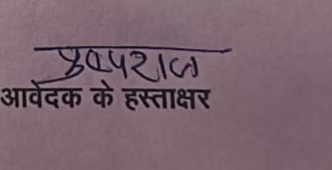 पुष्पराज
आवेदक के हस्ताक्षर